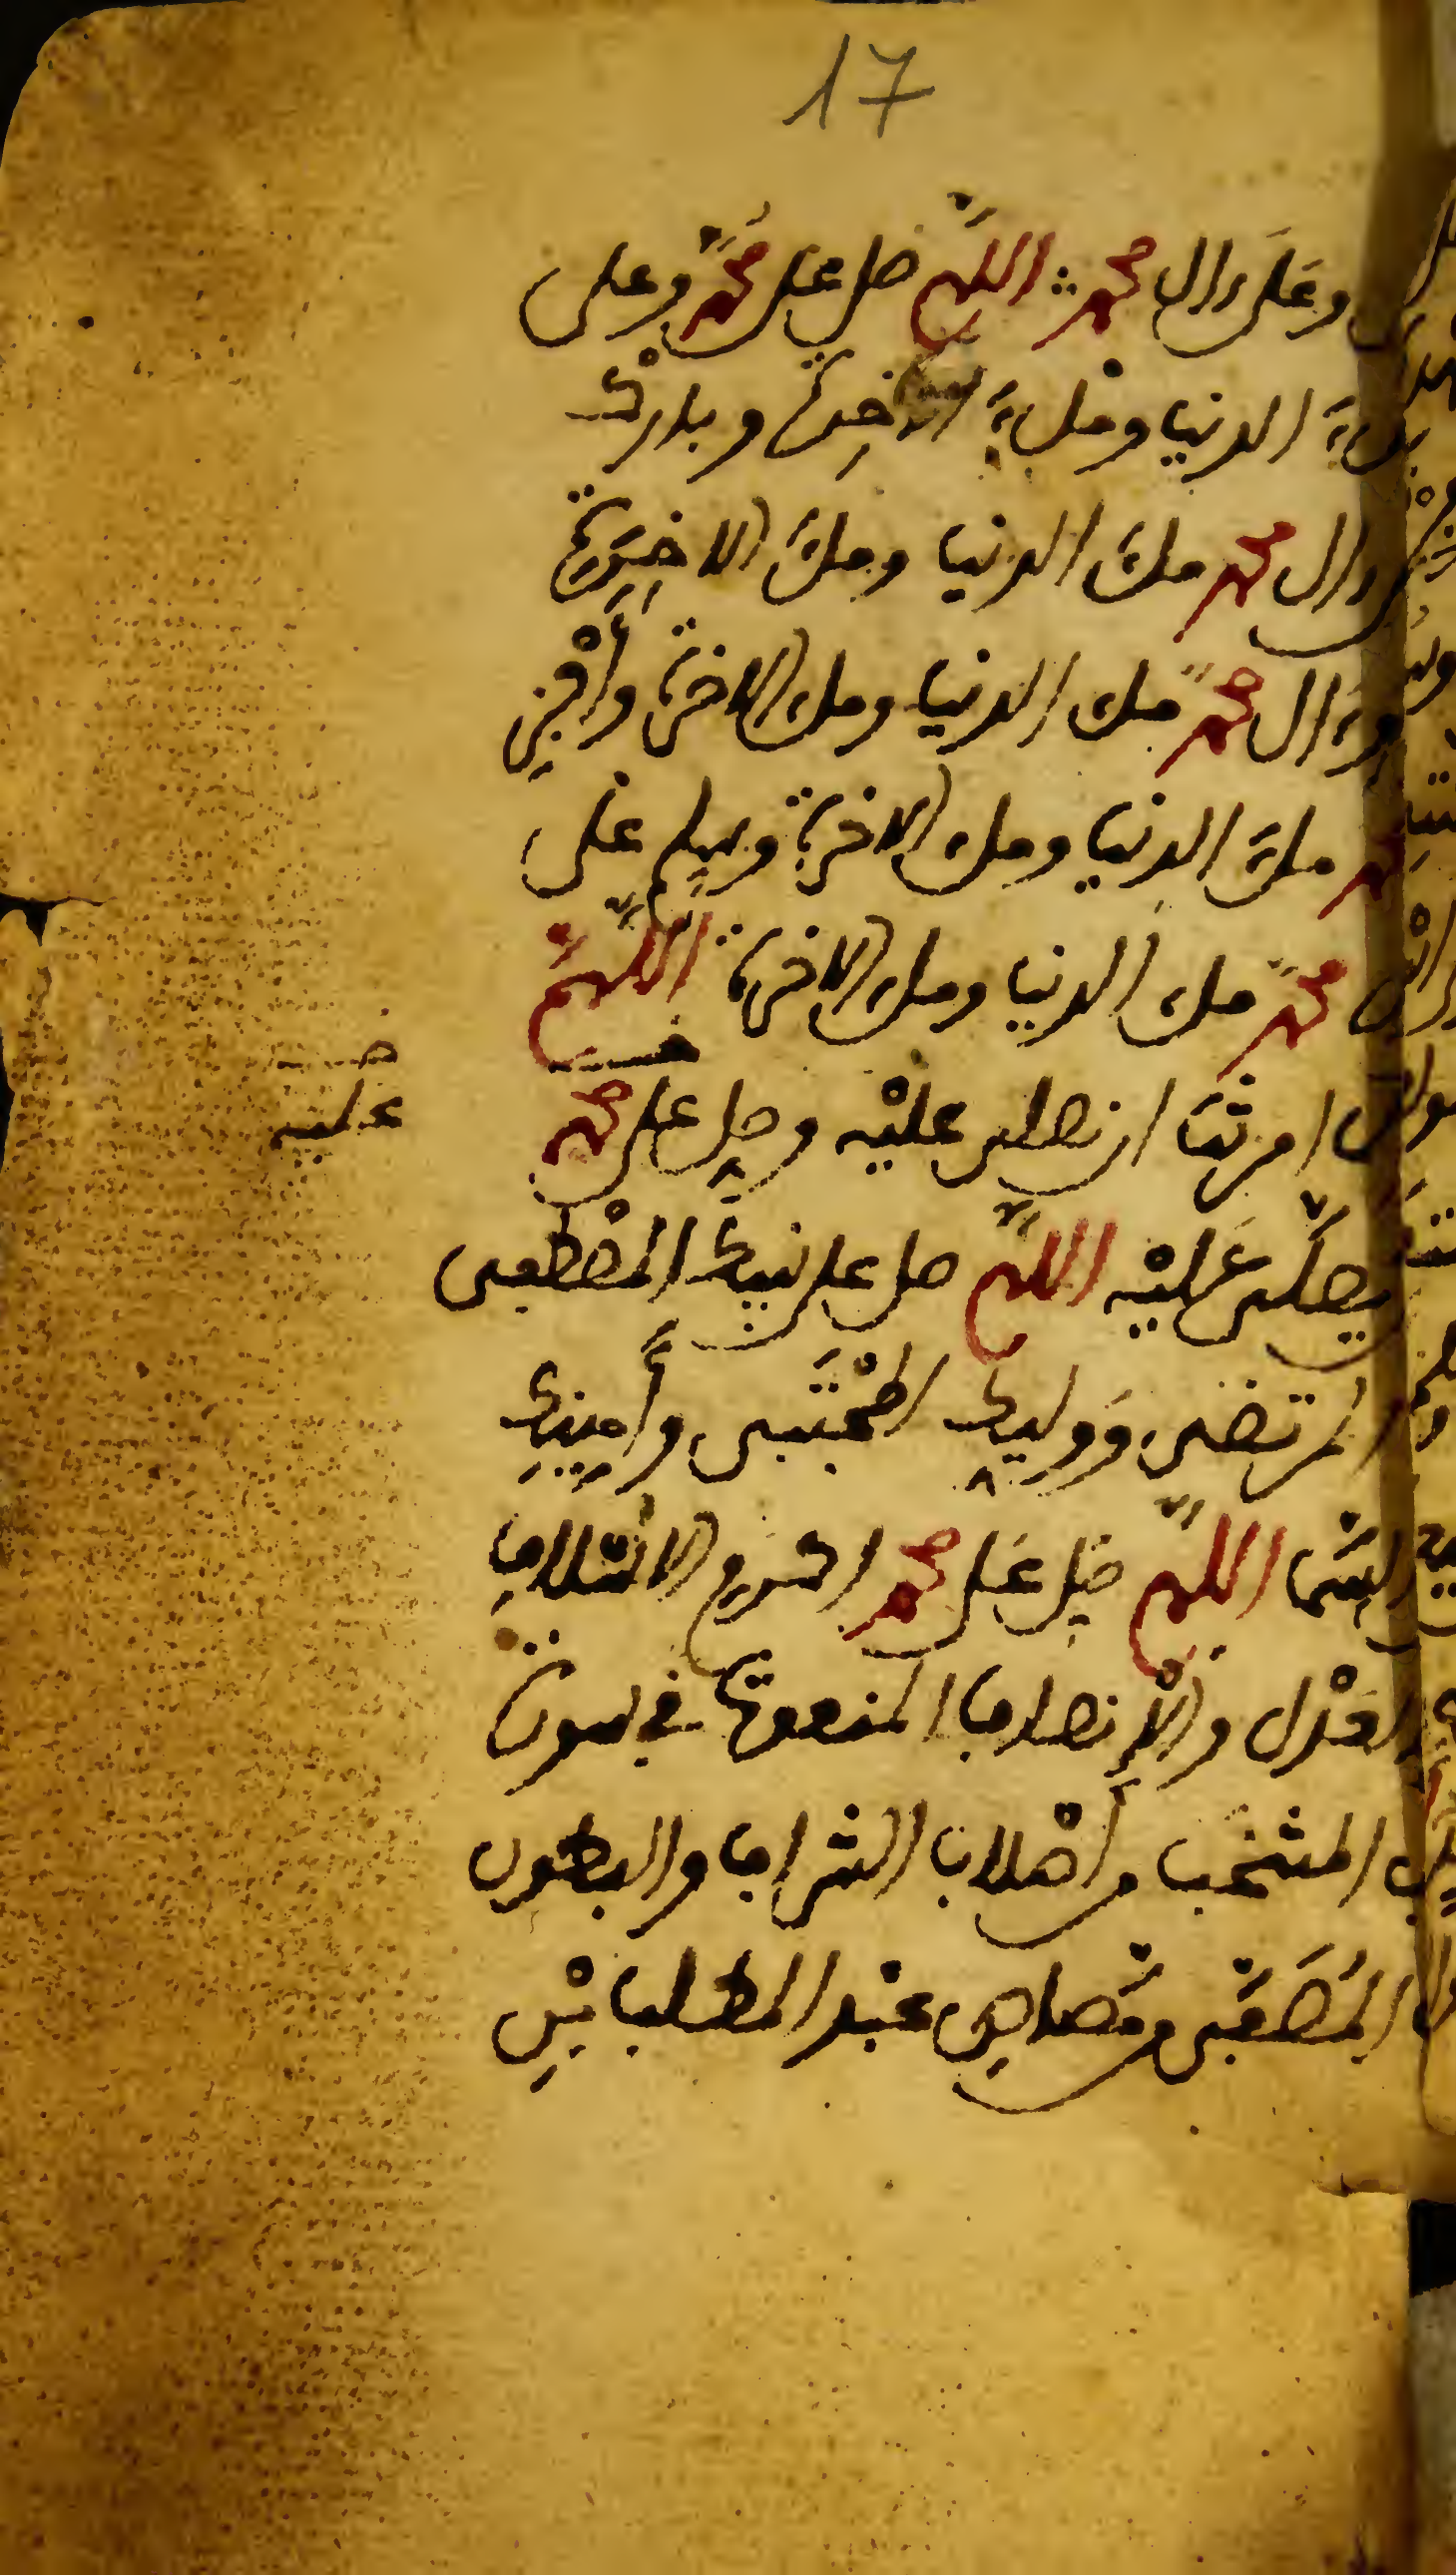 17
وعلى ءال محمد اللهم صل على محمد وعلى
ملء الدنيا وملء الاخرة وبارك
وال محمد ملء الدنيا وملء الاخرة
وءال محمد ملء الدنيا وملء الاخرة واجز
ملء الدنيا وملء الاخرة وسلم على
محمد ملء الدنيا وملء الاخرة اللهم
امرتنا ان نصلي عليه وصل على محمد
عليه
يصلى عليه اللهم صل على نبيك المصطفى
المرتضى ووليك المجتبى وأمينك
السما اللهم صل على محمد اكرم الاسلاف
العدل والانصاف المنعوت في سورة
المنتخب من اصلاب الشراف والبطون
المصفى من مصاص عبد المطلب بن